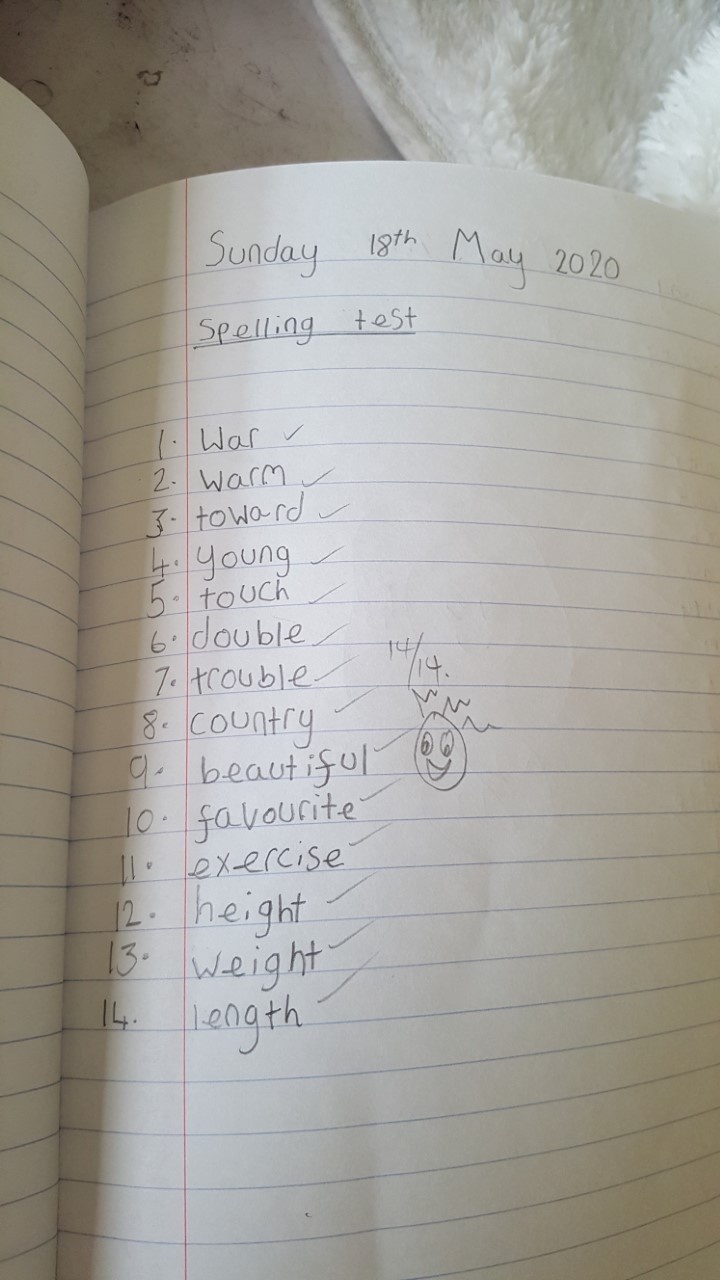 Sunday 18th May 2020
Spelling test
1. War ✓
2. warm ✓
3. toward ✓
4. young ✓
5. touch ✓
6. double ✓
14/14.
7. trouble ✓
8. country ✓
9. beautiful ✓
10. favourite ✓
11. exercise ✓
12. height ✓
13. weight ✓
14. length ✓